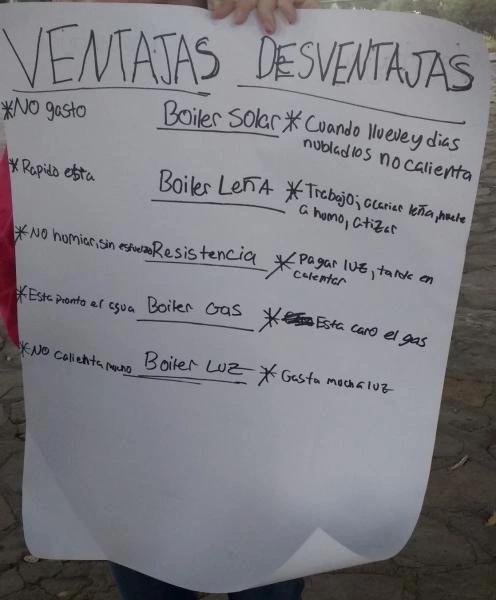 VENTAJAS DESVENTAJAS
*No gasto Boiler Solar *Cuando llueve y dias
nubladlos no calienta
*Rapido esta Boiler LeñA *Trabajo; acariar leña, huele
a homo, atizar
*No homiar, sin esfuerzo Resistencia *Pagar luz, tarda en
calentar
*Esta pronto el agua Boiler Gas * Esta caro el gas
*No Calienta mucho Boiler Luz *Gasta mocha luz